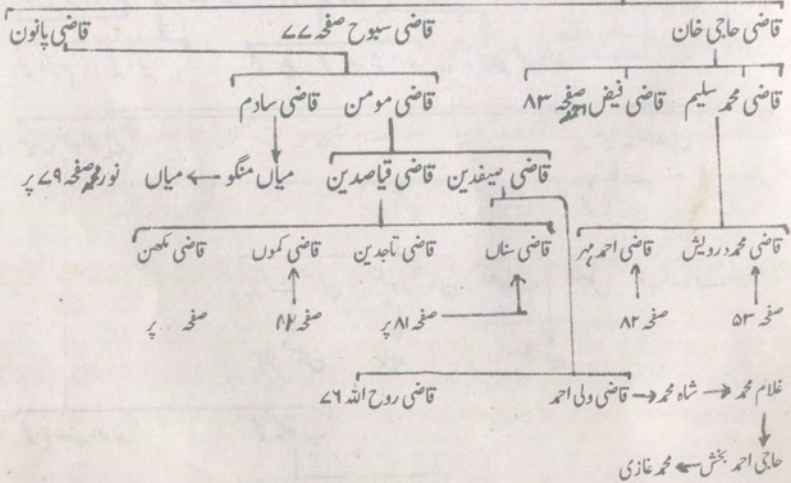 قاضی حاجی خان قاضی سبوح صفحہ ۷۷ قاضی پانون
قاضی محمد سلیم قاضی فیض احمد صفحہ ۸۳ قاضی مومن قاضی سادم
قاضی صیفدین قاضی قیاصدین میاں منگو میاں نور محمد صفحہ ۷۹ پر
قاضی محمد درویش قاضی احمد مہر قاضی سناں قاضی تاجدین قاضی کموں قاضی مکھن
صفحہ ۵۳ صفحہ ۸۲ صفحہ ۸۱ پر صفحہ صفحہ پر
غلام محمد شاہ محمد قاضی ولی احمد قاضی روح اللہ ۷۶
حاجی احمد بخش محمد غازی